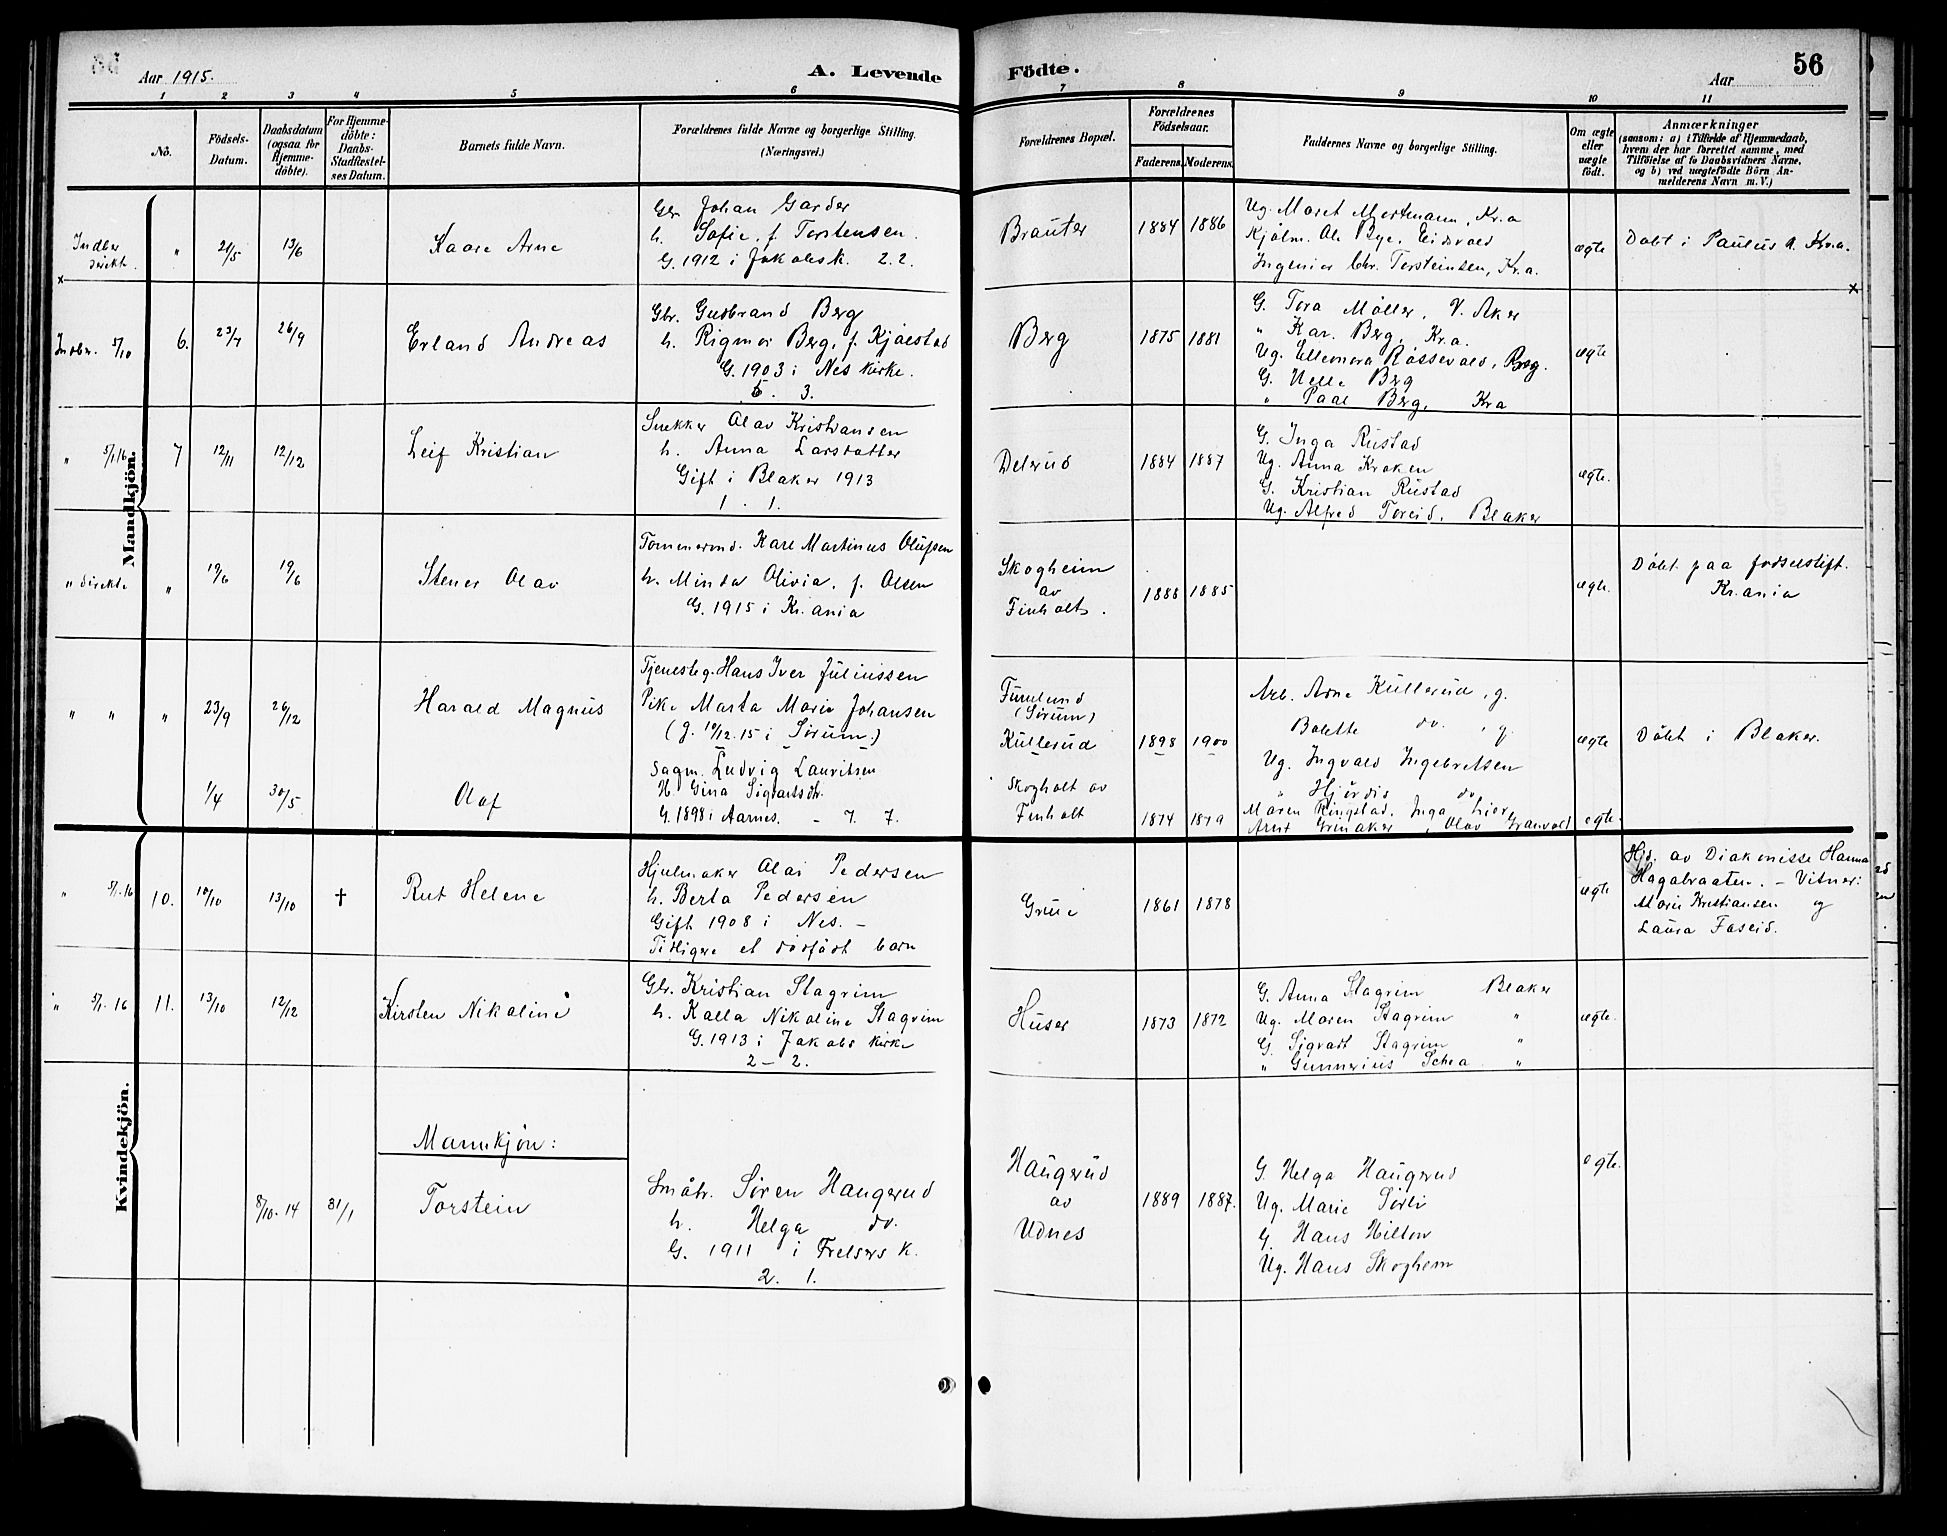 Aar 1915.
A. Levende
Födte.
Aar
56
1 2 3 4 5 6 7 8 9 10 11
No.
Födsels-
Datum.
Daabsdatum
(ogsaa for
Hjemme-
döbte).
For Hjemme-
döbte:
Daabs-
Stadfæstel-
ses Datum.
Barnets fulde Navn.
Forældrenes fulde Navne og borgerlige Stilling.
(Næringsvei.)
Forældrenes Bopæl.
Forældrenes
Födselsaar.
Faderens. Moderens.
Faddernes Navne og borgerlige Stilling.
Om ægte
eller
uægte
födt.
Anmærkninger
(saasom: a) i Tilfælde af Hjemmedaab,
hvem der har forrettet samme, med
Tilföielse af to Daabsvidners Navne,
og b) ved uægtefödte Börn An-
melderens Navn m. V.)
Mandkjön.
Indber
direkte.
" 21/5 13/6
Kaare Arne
Gbr. Johan Garder
h. Sofie, f. Torstensen.
G. 1912 i Jakobsk. 2.2.
Brauter
1884 1886
Ug. Maret Mortmann, Kr.a
Kjølm. Ole Bye, Eidsvold
Ingeniør Chr. Torsteinsen, Kr.a.
ægte
Døbt i Paulus k. Kr.a.
x
x
Indbr. 5/10
6. 23/7 26/9
Erland Andreas
Gbr. Gudbrand Berg
h. Rigmor Berg, f. Kjølstad
G. 1903 i Nes Kirke.
5. 3.
Berg
1875 1881
G. Tora Møller, V. Aker
" Kar. Berg, Kr.a.
Ug. Elleonora Røssevold, Berg.
G. Helle Berg
" Paal Berg, Kra
ægte
" 5/1 16
7 12/11 12/12
Leif Kristian
Snekker Olav Kristiansen
h. Anna Larsdatter
Gift i Blaker 1913
1. 1.
Delerud
1884 1887
G. Inga Rustad
Ug. Anna Kroken
G. Kristian Rustad
Ug. Alfred Toreid, Blaker
ægte.
" direkte
" 19/6 19/6
Stener Olav
Tømmermd. Karl Martinus Olufsen
h. Minda Olivia, f. Olsen
G. 1915 i Kr.ania
Skogheim
av
Finholt.
1888 1885
ægte.
Døbt paa fødselstift.
Kr.ania
" "
" 23/9 26/12
Harald Magnus
Tjenesteg. Hans Iver Juliussen
Pike Marta Marie Johansen
(g. 10/12.15 i Sørum.)
Furulund
(Sørum)
Kullerud
1898 1900
Arb. Arne Kullerud, g.
Bolette do. , g.
Ug. Ingvald Ingebretsen
" Hjørdis do
ægte
Døbt i Blaker.
1/4 30/5
Olaf
Sagm. Ludvig Lauritsen
H. Gina Sigvartsdtr.
G. 1898 i Aarnes. - 7. 7.
Skogholt av
Finholt
1874 1879
Maren Ringstad, Inga Lier,
Arnt Grinaker, Olav Granvold
egte.
Kvindekjön.
" 5/1.16
10. 10/10 13/10 †
Rut Helene
Hjulmaker Olai Pedersen
h. Berta Pedersen
Gift 1908 i Nes. -
Tidligere et dødfødt barn
Grue
1861 1878
ægte
Hjd. av Diakonisse Hanna
Hagabraaten. - Vitner:
Marie Kristiansen og
Laura Faseid.
" 5/1.16
11. 13/10 12/12
Kirsten Nikoline
Gbr. Kristian Stagrim
h. Kalla Nikoline Stagrim
G. 1913 i Jakobs kirke
2 - 2.
Huser
1873 1872
G. Anna Stagrim Blaker
Ug. Maren Stagrim "
G. Sigvart Stagrim "
" Gunnerius Schea "
ægte.
Mannkjøn:
8/10.14 31/1
Torstein
Småbr. Søren Haugerud
h. Helga do.
G. 1911 i Frelsers k.
2. 1.
Haugerud
av
Udnes
1889 1887.
G. Helga Haugerud
Ug. Marie Sørli
G. Hans Hilton
Ug. Hans Skoghem
egte.